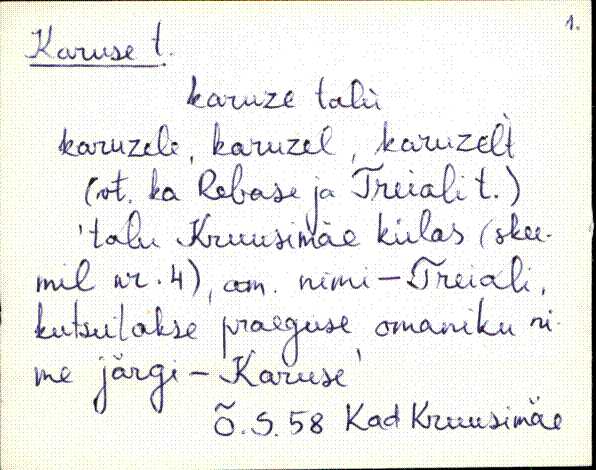 1.
Karuse t.
karuze talu
karuzele, karuzel, karuzelt
(vt. ka Rebase ja Treiali t.)
'talu Kruusimäe külas (skee-
mil nr. 4), am. nimi - Treiali,
kutsutakse praeguse omaniku ni-
me järgi - Karuse'
Õ.S. 58 Kad Kruusimäe